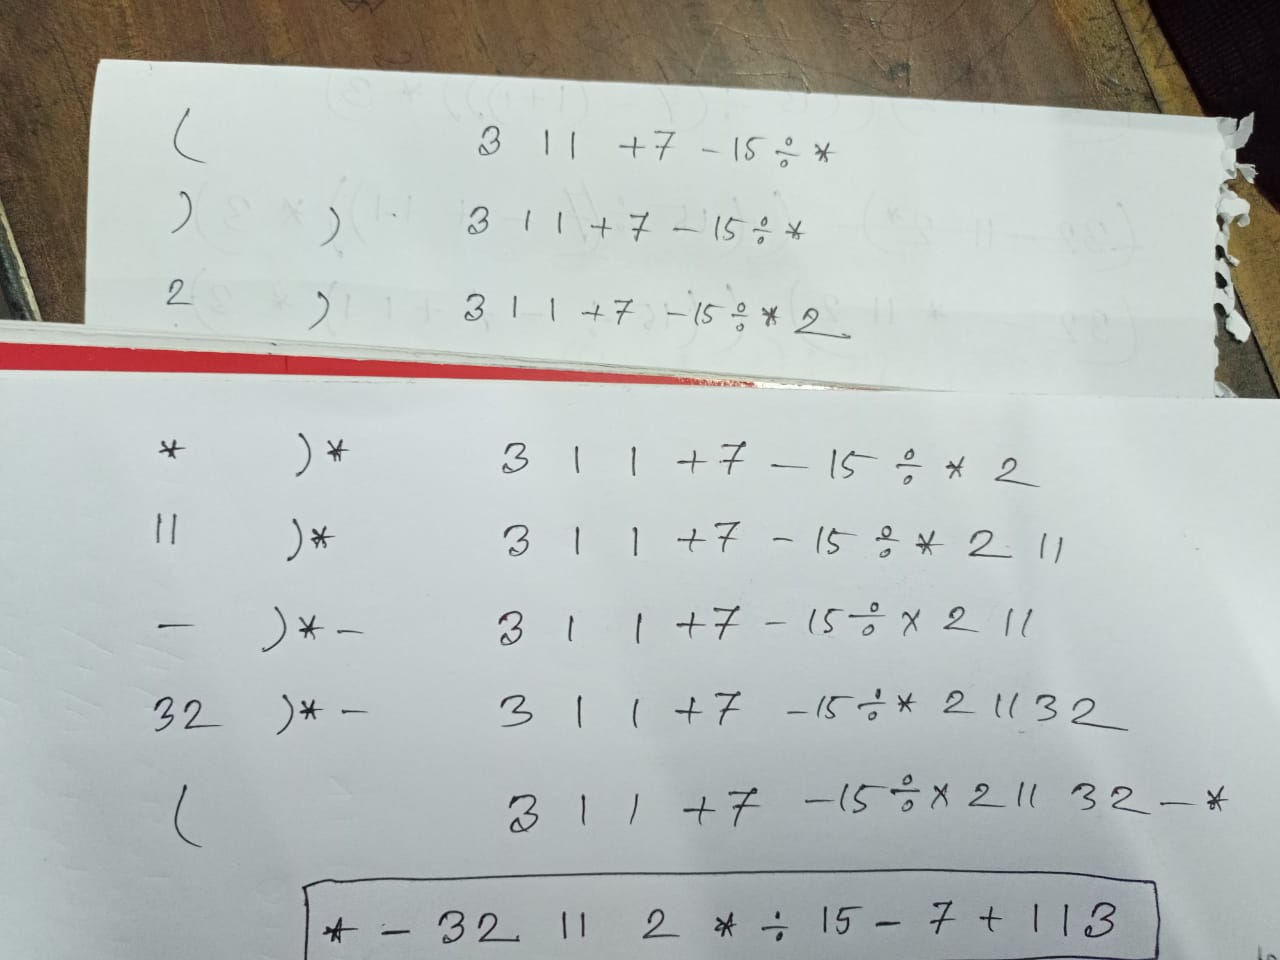 ( 3 1 1 + 7 - 15 ÷ *
) ) 3 1 1 + 7 - 15 ÷ *
2 ) 3 1 1 + 7 - 15 ÷ * 2
* ) * 3 1 1 + 7 - 15 ÷ * 2
11 ) * 3 1 1 + 7 - 15 ÷ * 2 11
- ) * - 3 1 1 + 7 - 15 ÷ × 2 11
32 ) * - 3 1 1 + 7 - 15 ÷ * 2 11 32
( 3 1 1 + 7 - 15 ÷ × 2 11 32 - *
* - 32 11 2 * ÷ 15 - 7 + 1 1 3